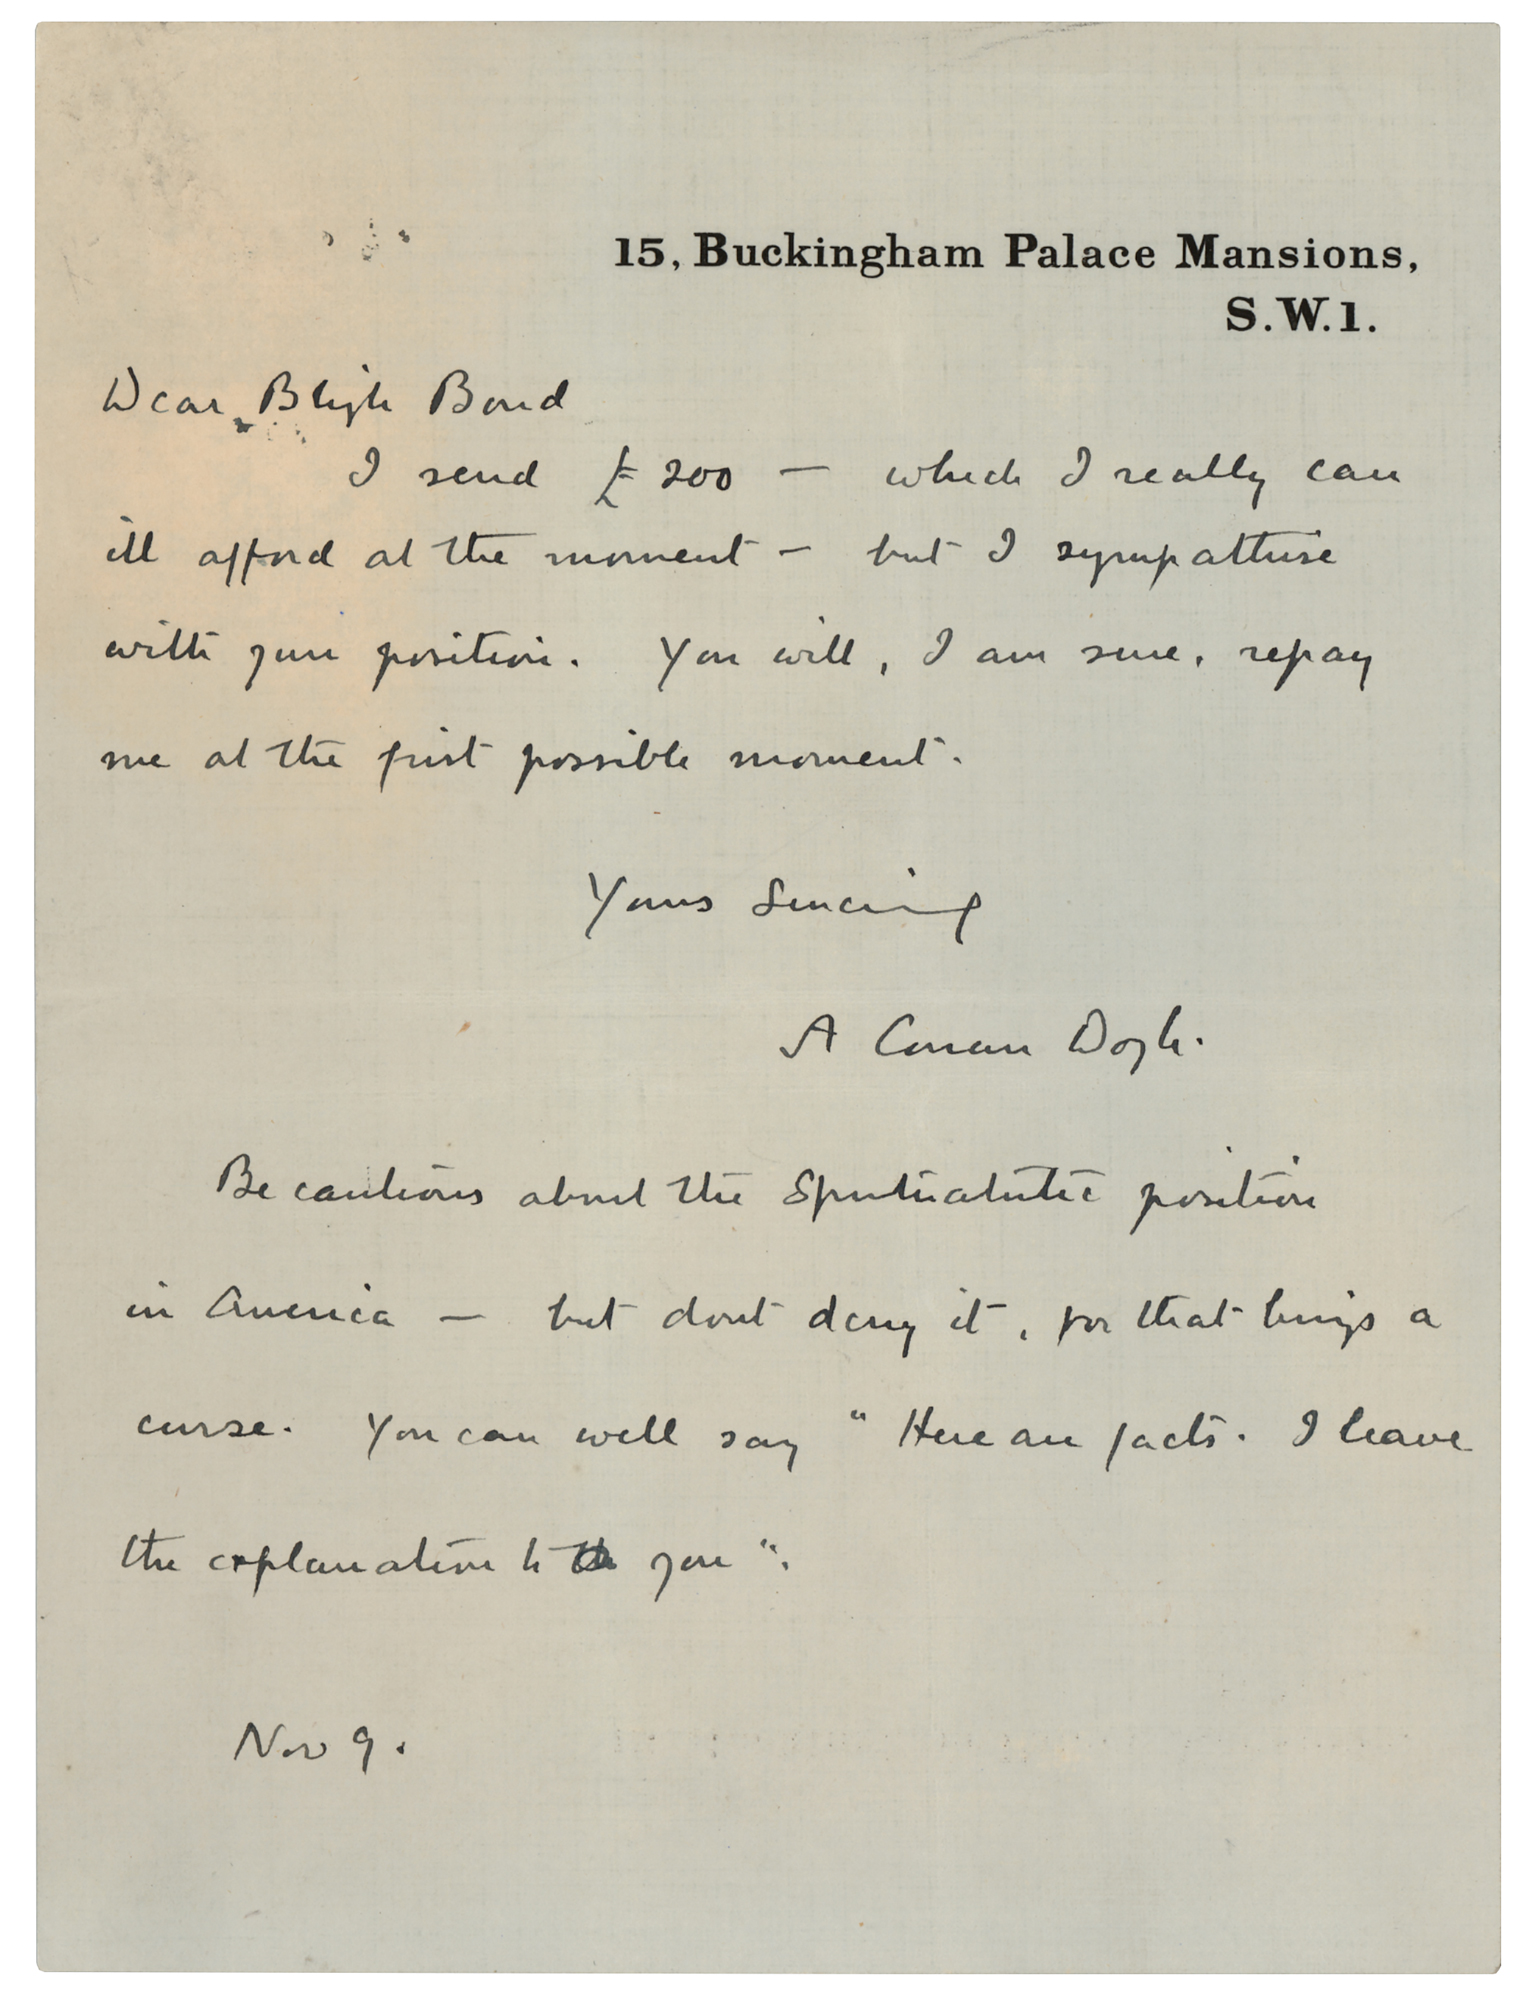 15, Buckingham Palace Mansions,
S.W.1.
Dear Bligh Bond
I send £200 — which I really can
ill afford at the moment — but I sympathise
with your position. You will, I am sure, repay
me at the first possible moment.
Yours Sincerely
A Conan Doyle.
Be cautious about the Spiritualistic position
in America — but dont deny it, for that brings a
curse. You can well say "Here are facts. I leave
the explanation to you".
Nov 9.